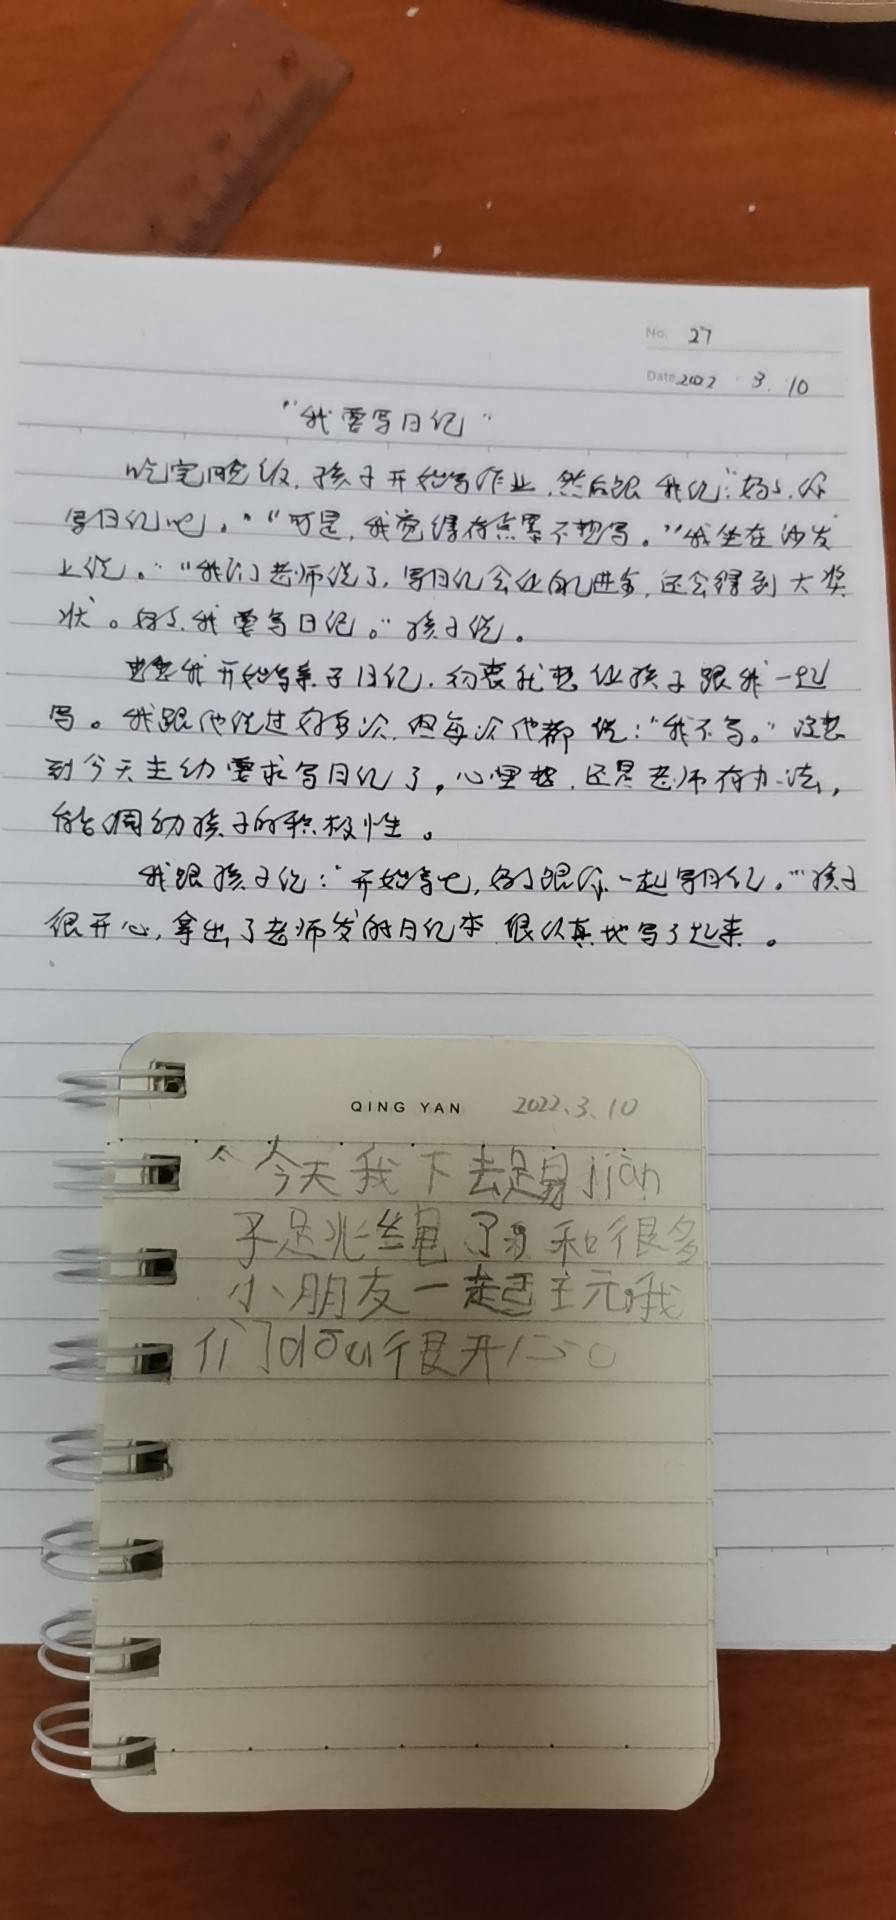 No. 27
Date 2022 . 3. 10
"我要写日记"
吃完晚饭，孩子开始写作业，然后跟我说："妈妈，你
写日记吧。""可是，我觉得有点累不想写。"我坐在沙发
上说。"我们老师说了，写日记会让自己进步，还会得到大奖
状。妈妈，我要写日记。"孩子说。
我开始写亲子日记，初衷我想让孩子跟我一起
写。我跟他说过好多次，但每次他都说："我不写。"没想
到今天主动要求写日记了，心里想，还是老师有办法，
能调动孩子的积极性。
我跟孩子说："开始写吧，妈妈跟你一起写日记。"孩子
很开心，拿出了老师发的日记本 很认真地写了起来。
QING YAN 2022.3.10
今天我下去 jiàn
子 绳了 和很多
小朋友一起 我
们dōu很开心。